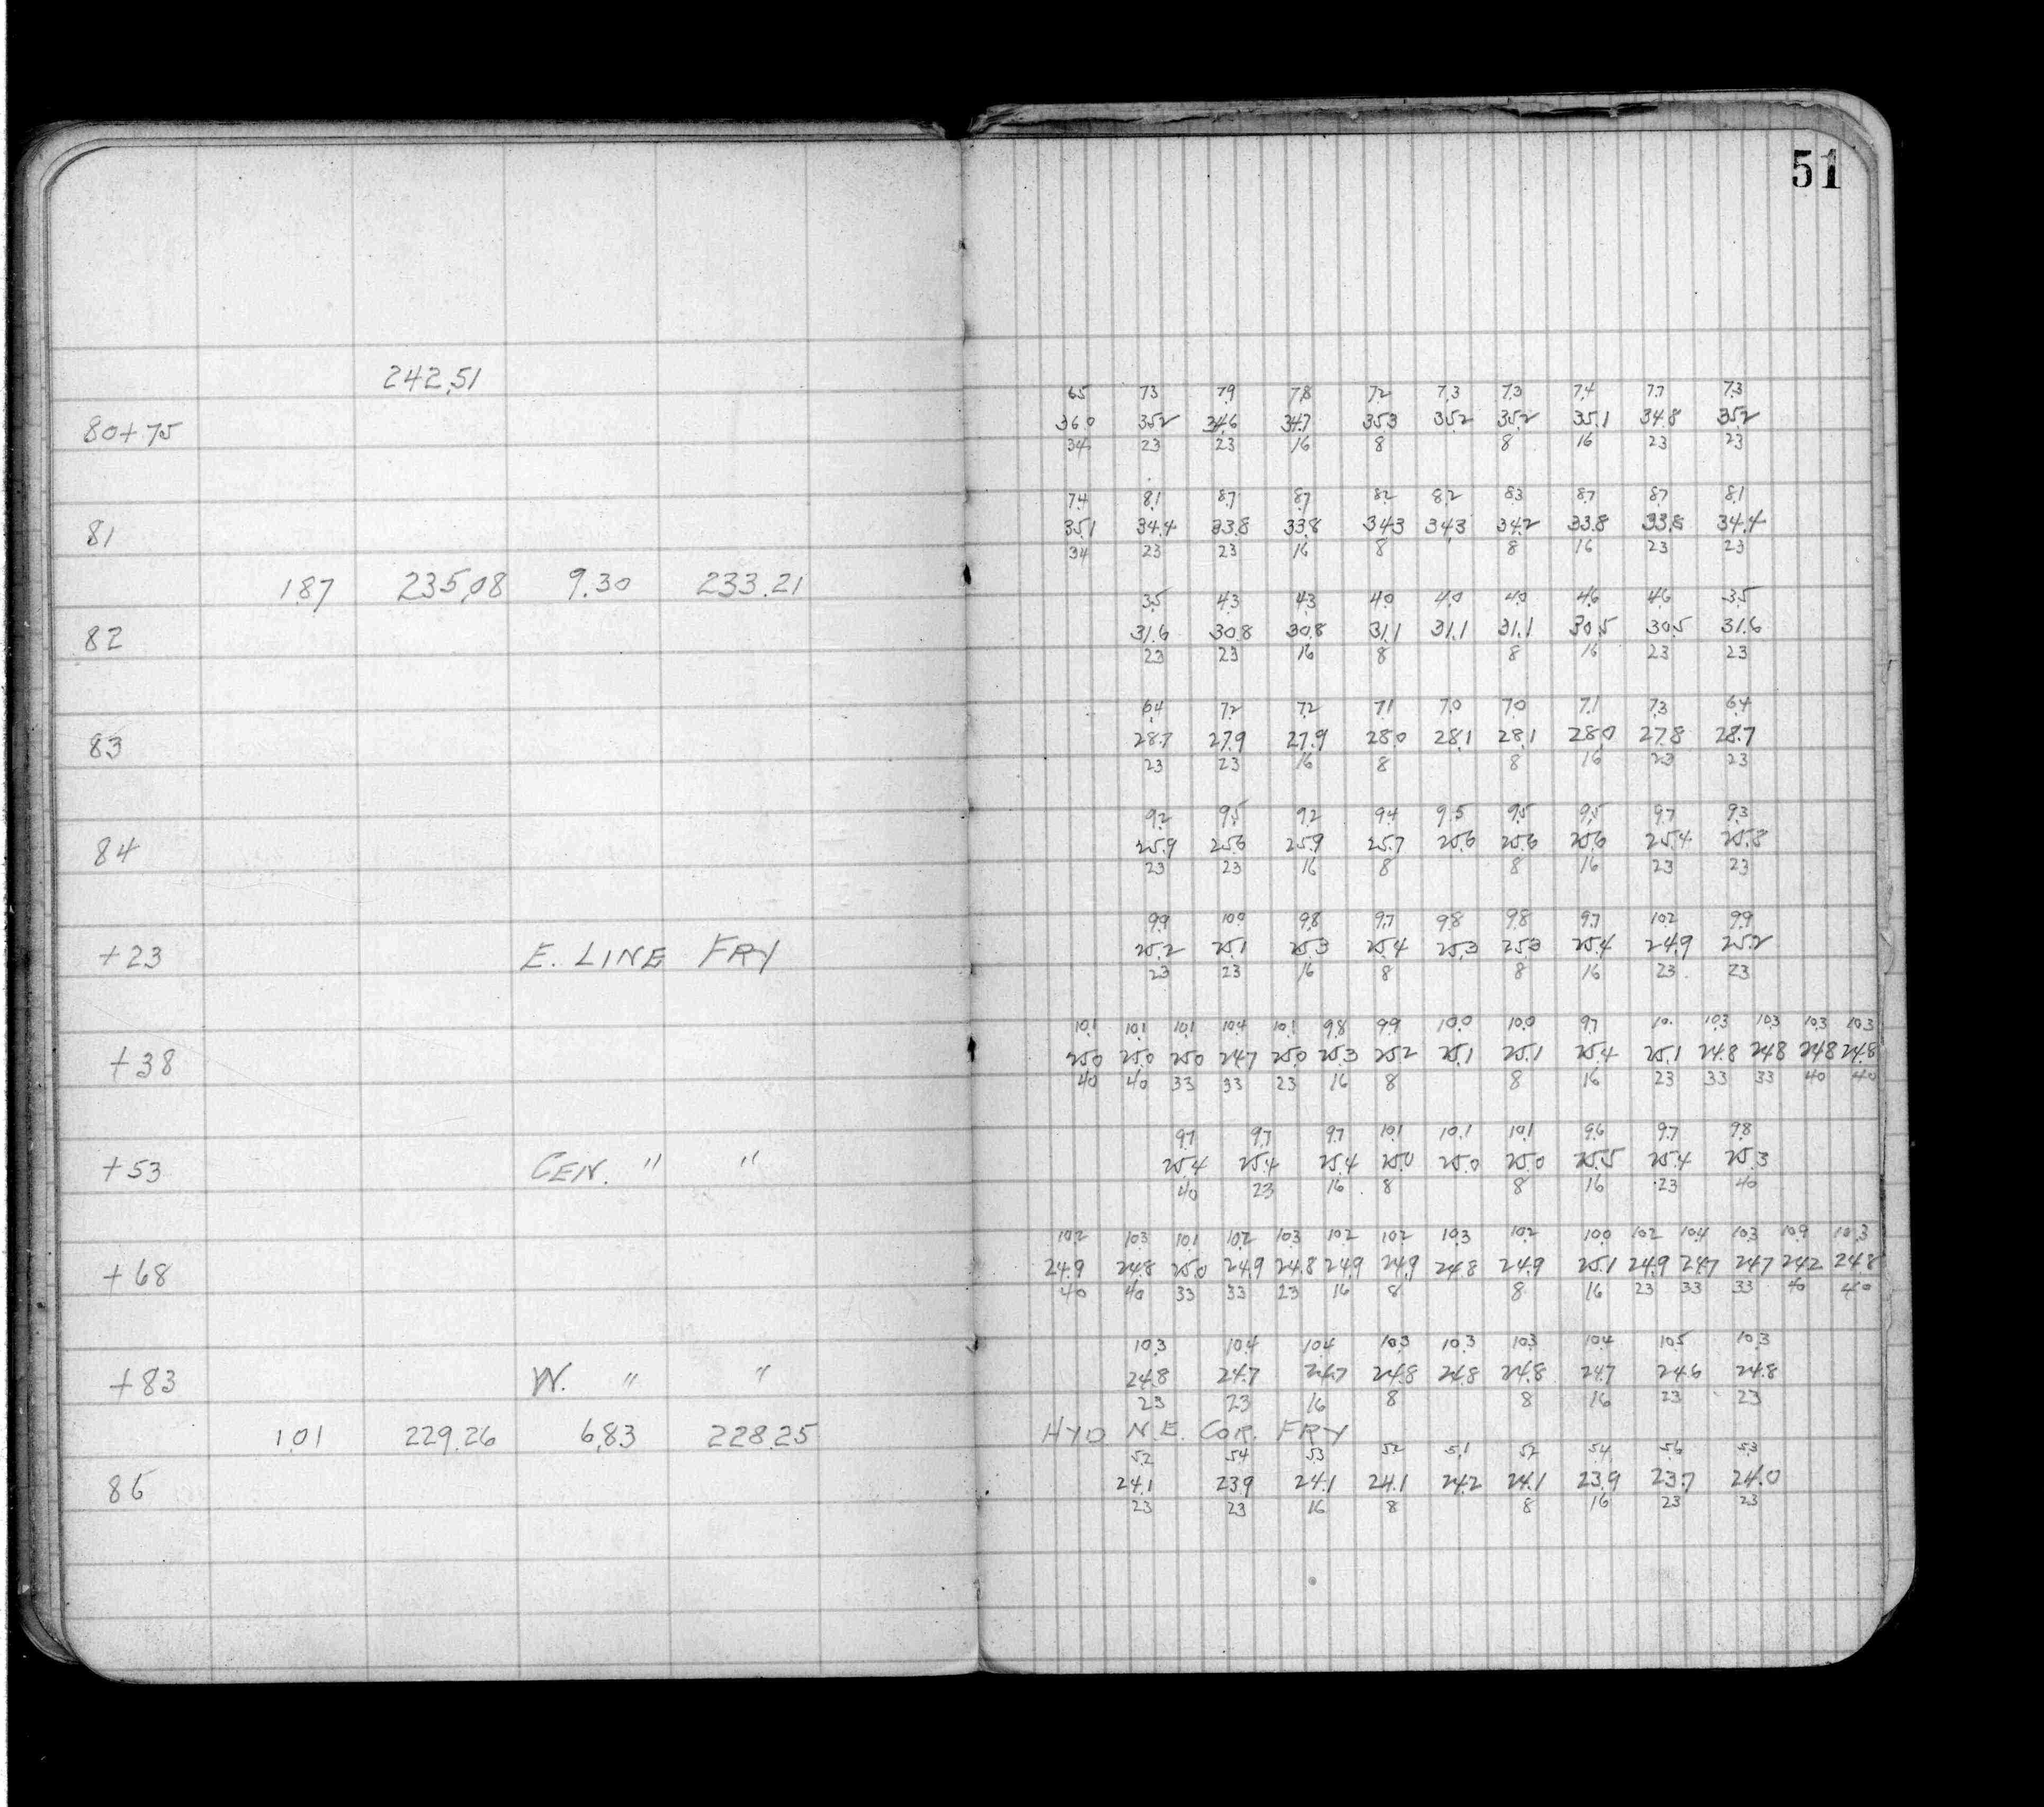 51
242.51
65 73 7.9 7.8 7.2 7.3 7.3 7.4 7.7 7.3
80+75 36.0 35.2 34.6 34.7 35.3 35.2 35.2 35.1 34.8 35.2
34 23 23 16 8 8 16 23 23
7.4 8.1 8.7 8.7 8.2 8.2 8.3 8.7 8.7 8.1
81 35.1 34.4 33.8 33.8 34.3 34.3 34.2 33.8 33.8 34.4
34 23 23 16 8 8 16 23 23
1.87 235.08 9.30 233.21
3.5 4.3 4.3 4.0 4.0 4.0 4.6 4.6 3.5
82 31.6 30.8 30.8 31.1 31.1 31.1 30.5 30.5 31.6
23 23 16 8 8 16 23 23
6.4 7.2 7.2 7.1 7.0 7.0 7.1 7.3 6.4
83 28.7 27.9 27.9 28.0 28.1 28.1 28.0 27.8 28.7
23 23 16 8 8 16 23 23
9.2 9.5 9.2 9.4 9.5 9.5 9.5 9.7 9.3
84 25.9 25.6 25.9 25.7 25.6 25.6 25.6 25.4 25.8
23 23 16 8 8 16 23 23
9.9 10.0 9.8 9.7 9.8 9.8 9.7 10.2 9.9
+23 E. LINE FRY 25.2 25.1 25.3 25.4 25.3 25.3 25.4 24.9 25.2
23 23 16 8 8 16 23 23
10.1 10.1 10.1 10.4 10.1 9.8 9.9 10.0 10.0 9.7 10. 10.3 10.3 10.3 10.3
+38 25.0 25.0 25.0 24.7 25.0 25.3 25.2 25.1 25.1 25.4 25.1 24.8 24.8 24.8 24.8
40 40 33 33 23 16 8 8 16 23 33 33 40 40
9.7 9.7 9.7 10.1 10.1 10.1 9.6 9.7 9.8
+53 CEN. " " 25.4 25.4 25.4 25.0 25.0 25.0 25.5 25.4 25.3
40 23 16 8 8 16 23 40
10.2 10.3 10.1 10.2 10.3 10.2 10.2 10.3 10.2 10.0 10.2 10.4 10.3 10.9 10.3
+68 24.9 24.8 25.0 24.9 24.8 24.9 24.9 24.8 24.9 25.1 24.9 24.7 24.7 24.2 24.8
40 40 33 33 23 16 8 8 16 23 33 33 40 40
10.3 10.4 10.4 10.3 10.3 10.3 10.4 10.5 10.3
+83 W. " " 24.8 24.7 24.7 24.8 24.8 24.8 24.7 24.6 24.8
23 23 16 8 8 16 23 23
1.01 229.26 6.83 228.25 HYD N.E. COR. FRY
5.2 5.4 5.3 5.2 5.1 5.2 5.4 5.6 5.3
86 24.1 23.9 24.1 24.1 24.2 24.1 23.9 23.7 24.0
23 23 16 8 8 16 23 23